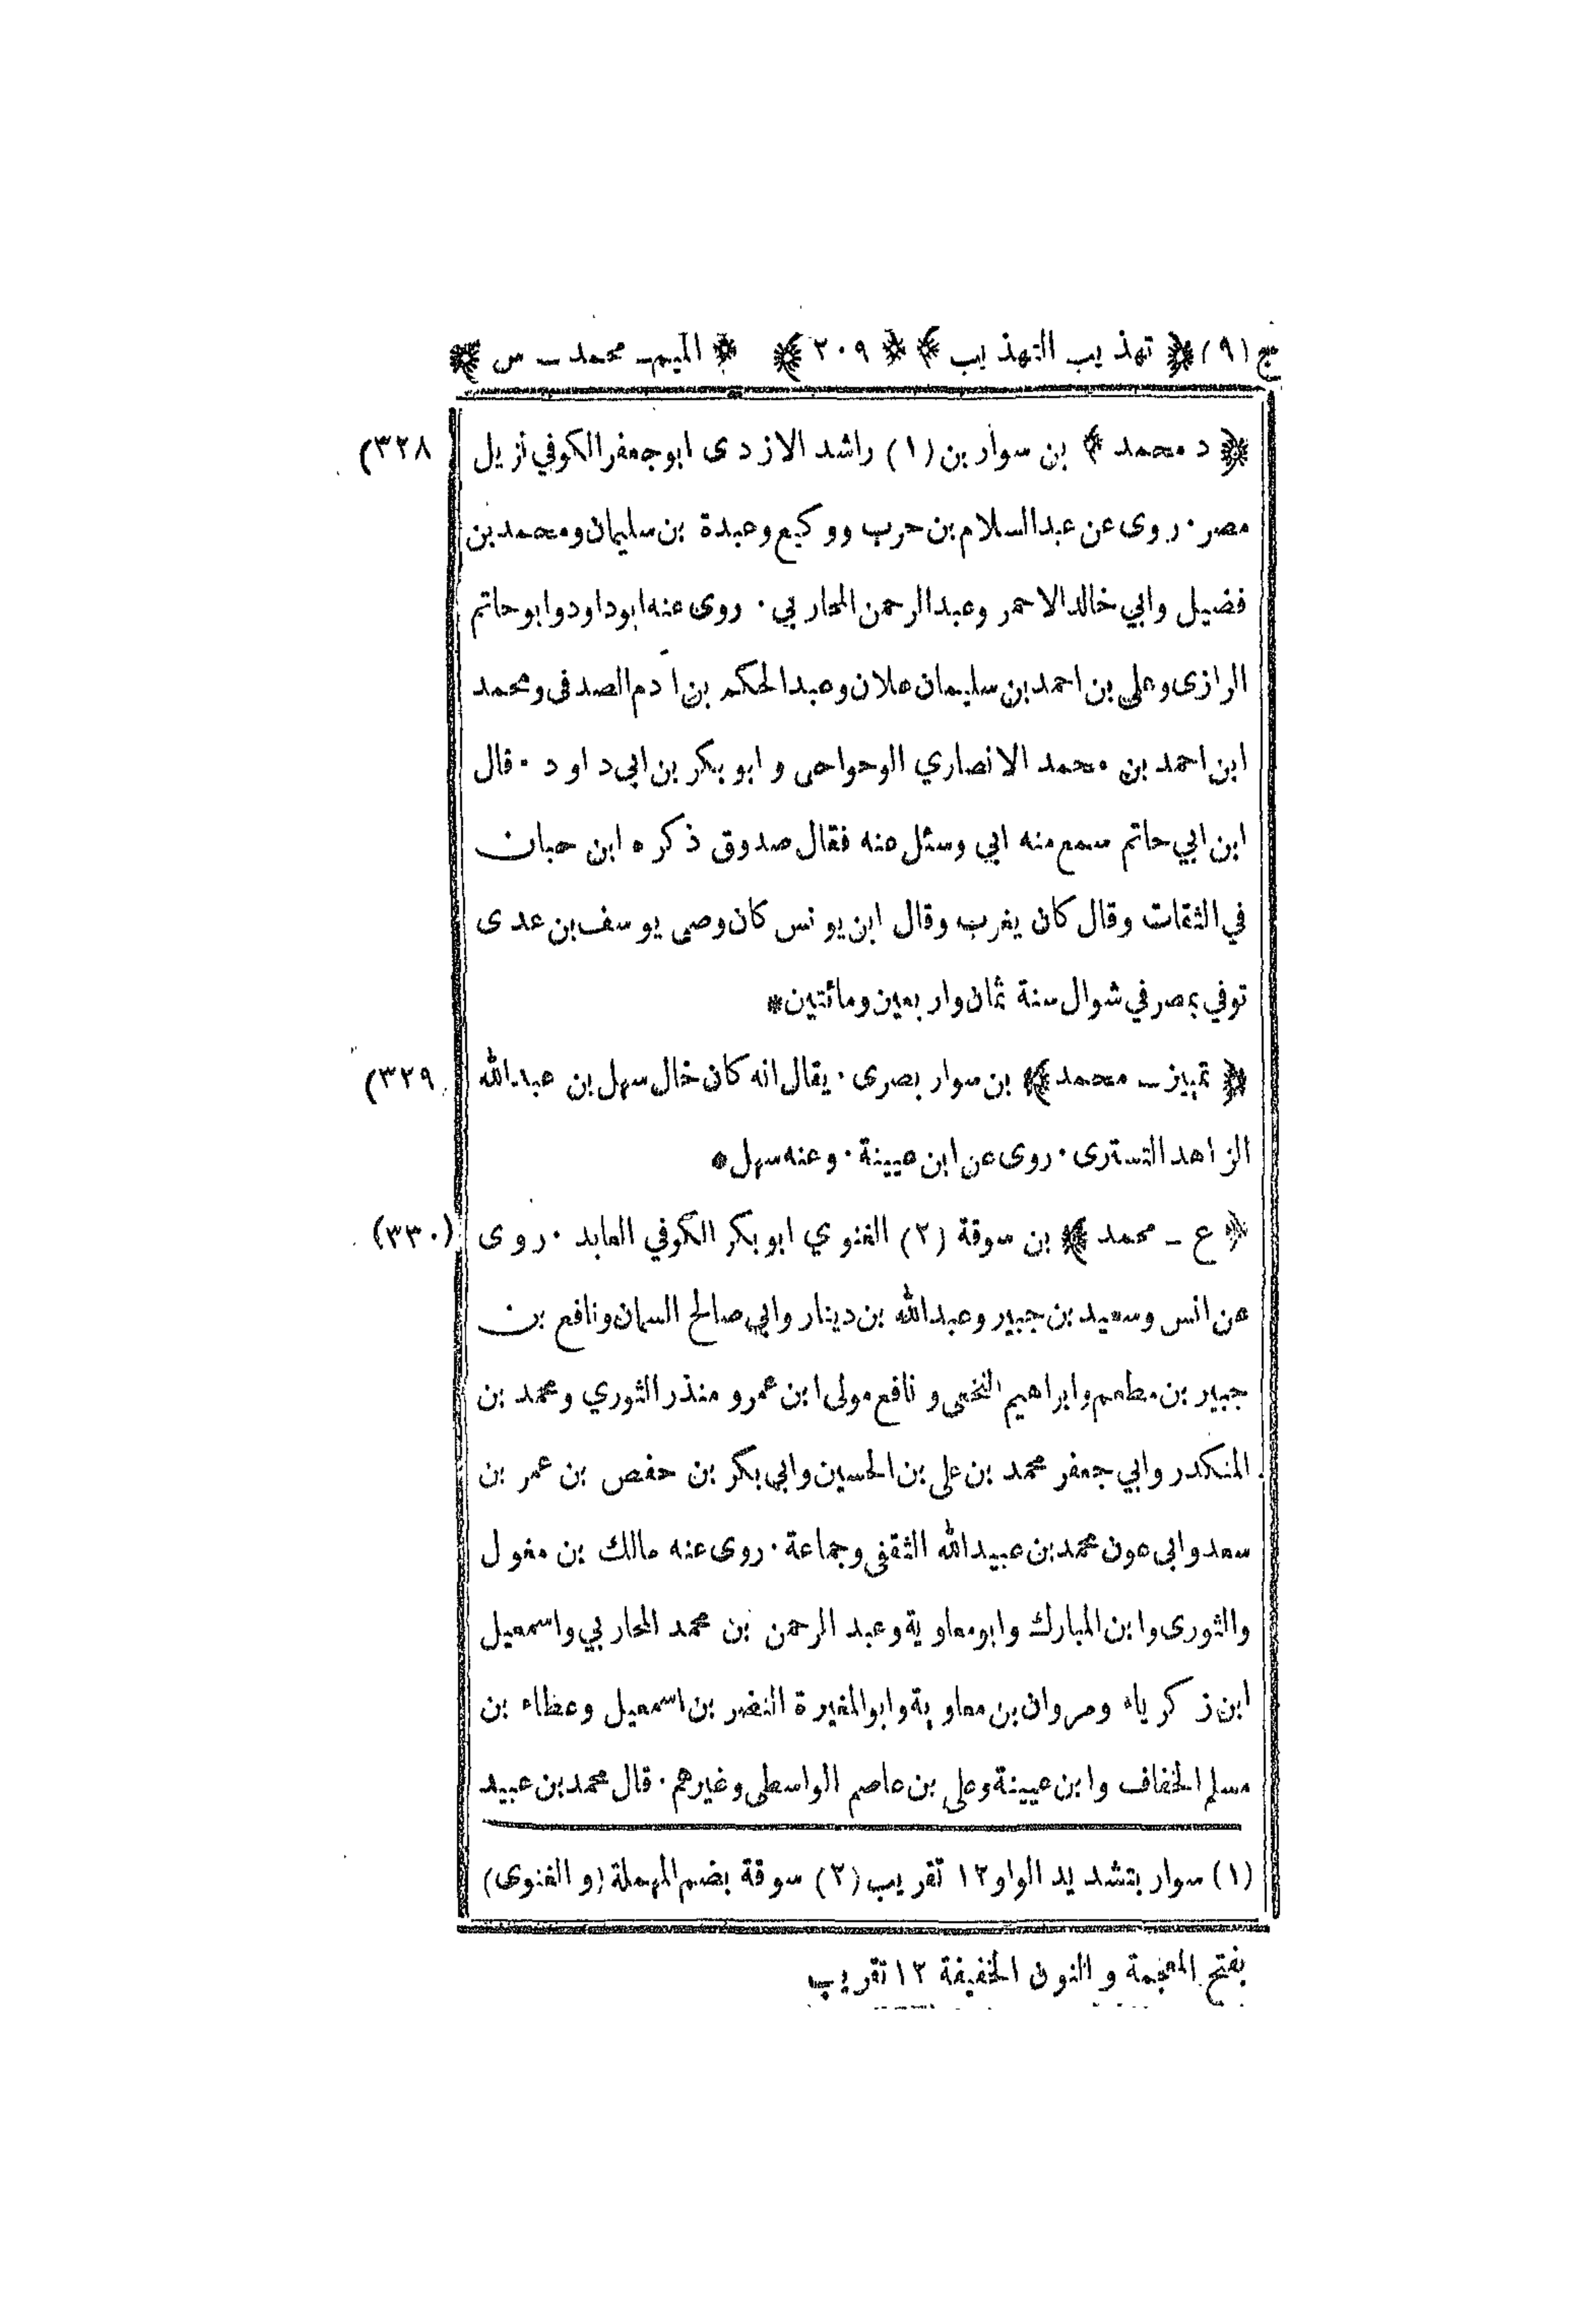 ج (٩) ﴿ تهذيب التهذيب ﴾ * ٢٠٩ ﴾ * الميم - محمد - س ﴾
﴿ د محمد ﴾ بن سوار بن (١) راشد الازدى ابو جعفر الكوفي نزيل (٣٢٨)
مصر · روى عن عبدالسلام بن حرب ووكيع وعبدة بن سليمان ومحمد بن
فضيل وابي خالد الاحمر وعبدالرحمن المحاربي · روى عنه ابوداود وابو حاتم
الرازى وعلى بن احمد بن سليمان علان وعبدالحكم بن آدم الصدفى ومحمد
ابن احمد بن محمد الانصاري الوحواحى وابو بكر بن ابي داود · قال
ابن ابي حاتم سمع منه ابي وسئل عنه فقال صدوق ذكره ابن حبان
في الثقات وقال كان يغرب وقال ابن يونس كان وصى يوسف بن عدى
توفي بمصر في شوال سنة ثمان واربعين ومائتين *
﴿ تمييز - محمد ﴾ بن سوار بصرى · يقال انه كان خال سهل بن عبدالله (٣٢٩)
الزاهد التسترى · روى عن ابن عيينة · وعنه سهل *
﴿ ع - محمد ﴾ بن سوقة (٢) الغنوي ابو بكر الكوفي العابد · روى (٣٣٠)
عن انس وسعيد بن جبير وعبدالله بن دينار وابي صالح السمان ونافع بن
جبير بن مطعم وابراهيم النخعى ونافع مولى ابن عمرو منذر الثوري ومحمد بن
المنكدر وابي جعفر محمد بن على بن الحسين وابي بكر بن حفص بن عمر بن
سعد وابى عون محمد بن عبيدالله الثقفى وجماعة · روى عنه مالك بن مغول
والثورى وابن المبارك وابو معاوية وعبد الرحمن بن محمد المحاربي واسمعيل
ابن زكرياء ومروان بن معاوية وابو المغيرة النضر بن اسمعيل وعطاء بن
مسلم الخفاف وابن عيينة وعلى بن عاصم الواسطى وغيرهم · قال محمد بن عبيد
(١) سوار بتشديد الواو ١٢ تقريب (٢) سوقة بضم المهملة (و الغنوى)
بفتح المعجمة و النون الخفيفة ١٢ تقريب